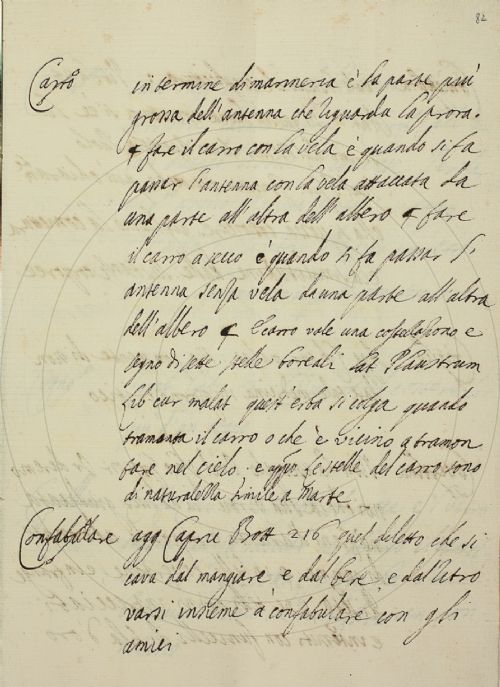 82
Carro in termine di marineria è la parte più
grossa dell'antenna che riguarda la prora.
fare il carro con la vela è quando si fa
passar l'antenna con la vela attaccata da
una parte all'altra dell'albero e fare
il carro a secco è quando si fa passar l'
antenna senza vela da una parte all'altra
dell'albero e carro vale una costellazione e
segno di sette stelle boreali Lat Plaustrum
Lib cur malat quest'erba si colga quando
tramonta il carro o che è vicino a tramon
tare nel cielo. e le stelle del carro sono
di natura simile a Marte
Confabulare agg Caprie Bott 216 quel diletto che si
cava dal mangiare e dal bere e dal ritro
varsi insieme a confabulare con gli
amici